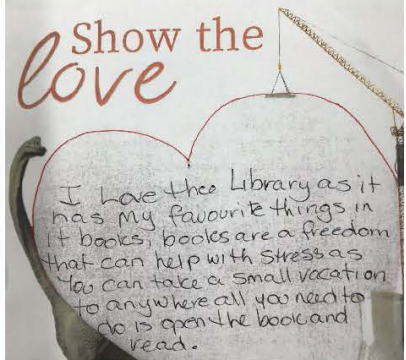 Show the
love
I Love thee Library as it
has My favourite things in
it books, books are a freedom
that can help with stress as
You can take a small vacation
to anywhere all you need to
do is open the book and
read.